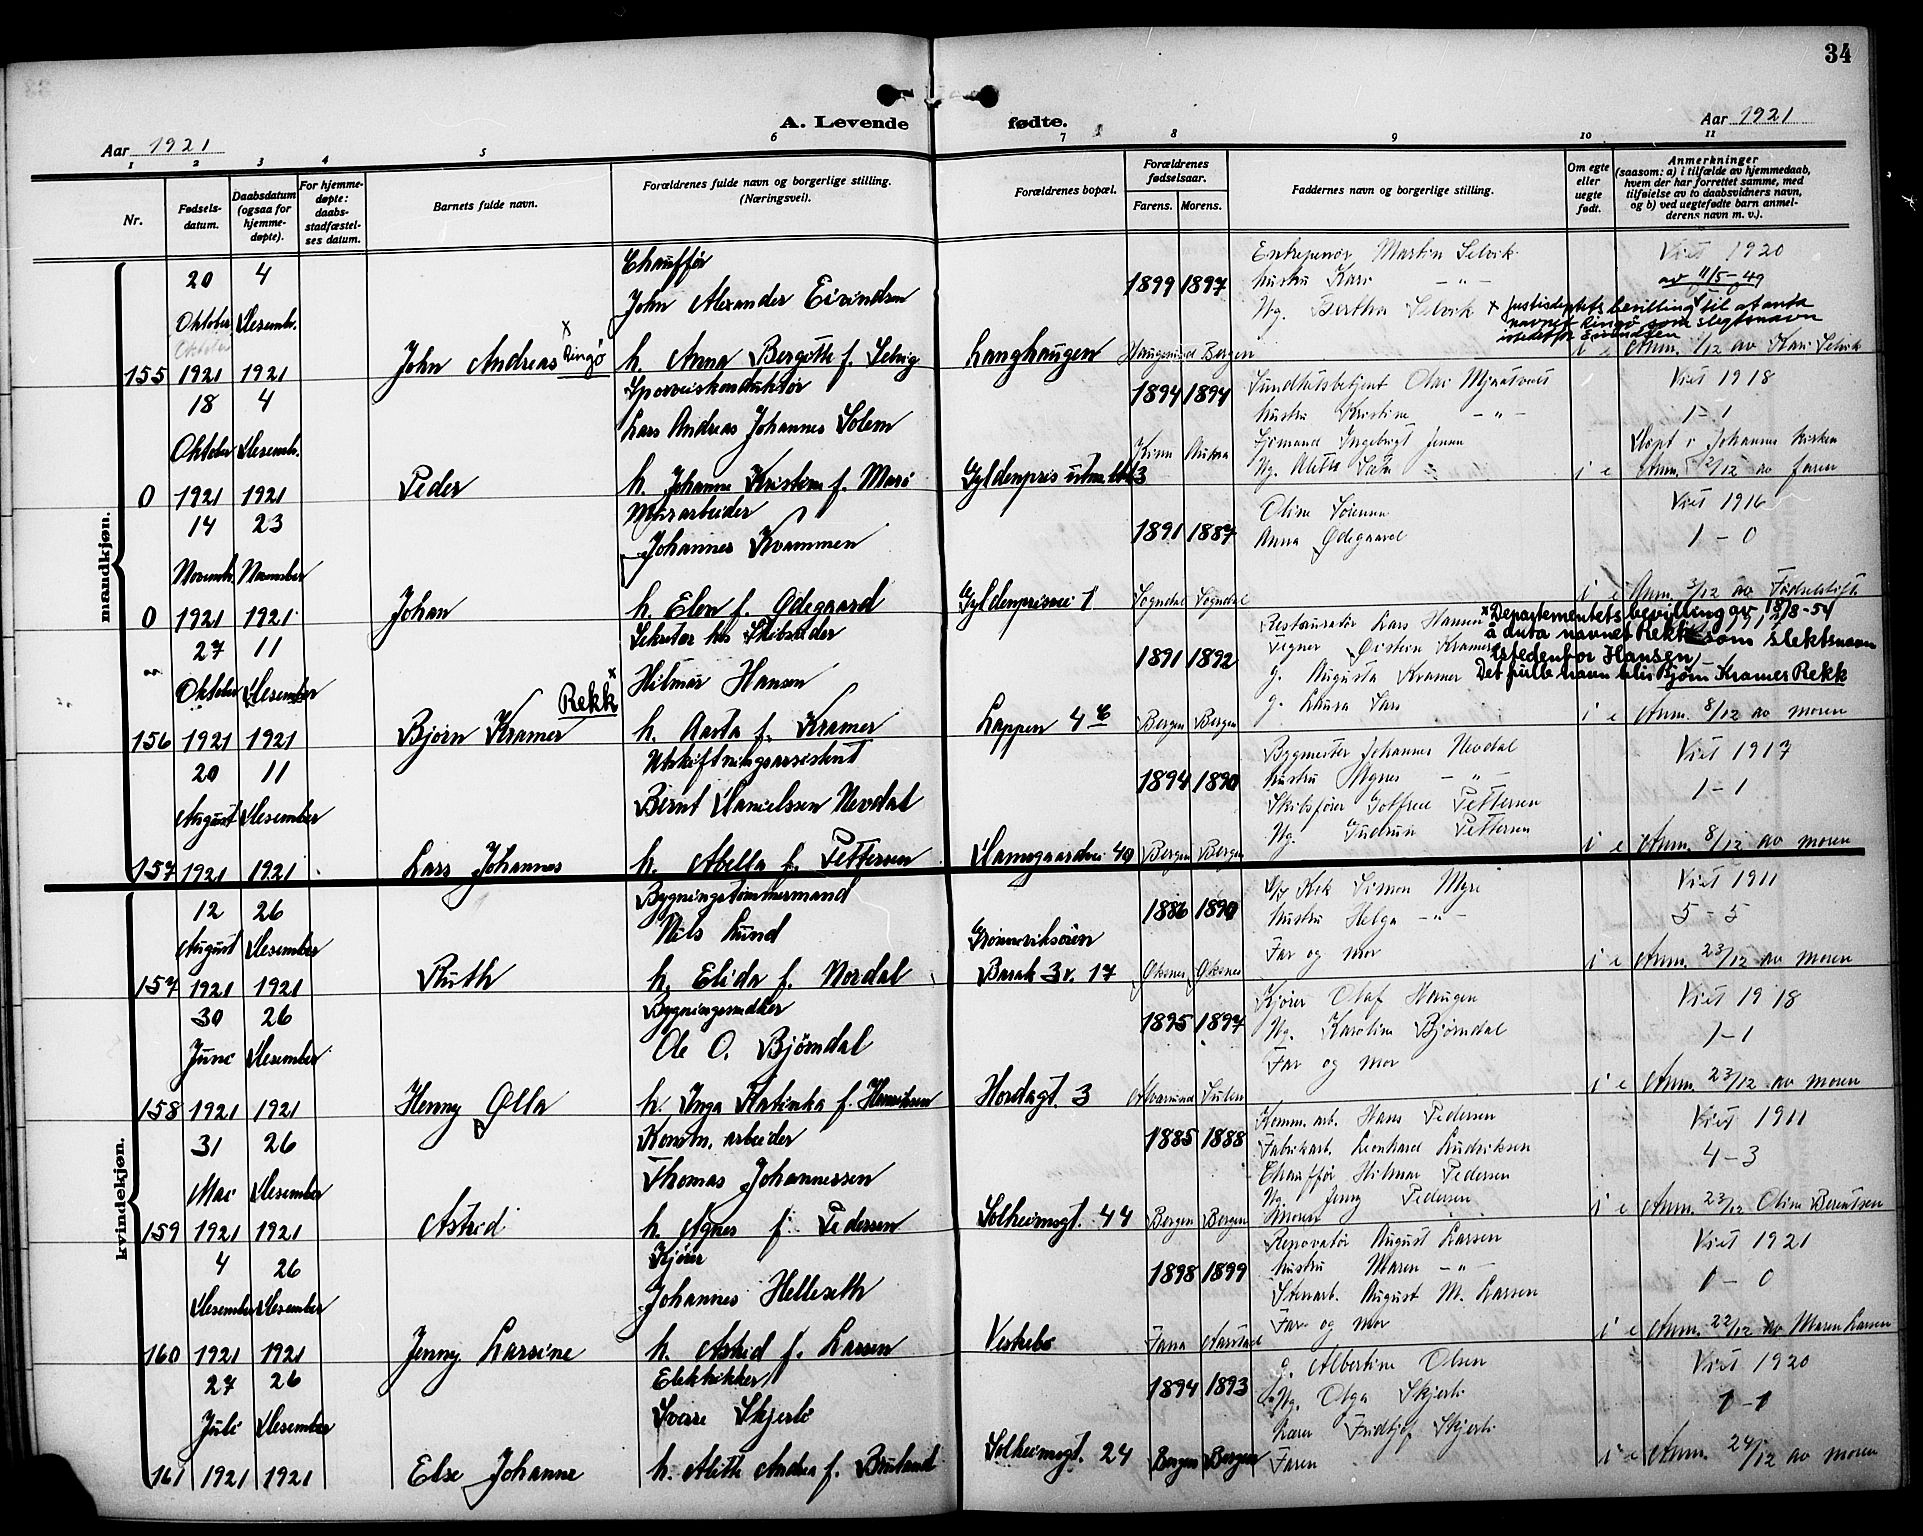 34
A. Levende fødte.
Aar 1921
Aar 1921
1 2 3 4 5 6 7 8 9 10 11
Nr.
Fødsels-
datum.
Daabsdatum
(ogsaa for
hjemme-
døpte).
For hjemme-
døpte:
daabs-
stadfæstel-
ses datum.
Barnets fulde navn.
Forældrenes fulde navn og borgerlige stilling.
(Næringsvei).
Forældrenes bopæl.
Forældrenes
fødselsaar.
Farens. Morens.
Faddernes navn og borgerlige stilling.
Om egte
eller
uegte
født.
Anmerkninger
(saasom: a) i tilfælde av hjemmedaab,
hvem der har forrettet samme, med
tilføielse av to daabsvidners navn,
og b) ved uegtefødte barn anmel-
derens navn m. v.).
mandkjøn.
155
20 Oktober 1921
4 Desemb. 1921
John Andreas x Ringø
Chauffør
John Alexander Eivindsen
h. Anna Bergitte f. Selvig
Langhaugen
1899 1897
Haugesund Bergen
Entreprenør Martin Selvik
hustru Kari - " -
Ug. Bertha Selvik
i e
Viet 1920
av 11/5-49
x Justisdeptets bevilling til at anta
navnet Ringø som slegtsnavn
istedetfor Eivindsen
Anm. 1/12 av Kari Selvik
0
18 Oktober 1921
4 Desemb. 1921
Peder
Sporveiskonduktør
Lars Andreas Johannes Solem
h. Johanne Kristine f. Marø
Gyldenpris
1894 1894
Kinn Aukra
Sundhetsbetjent
hustru Kristine - " -
Sjømand Ingebrigt Jensen
i e
Viet 1918
1-1
Døpt i Johannes kirken
Anm. 12/12 av faren
0
14 Novemb. 1921
23 November 1921
Johan
Murarbeider
Johannes Kvammen
h. Elen f. Ødegaard
Gyldenprisvei 1
1891 1887
Sogndal Sogndal
Oline
Anna Ødegaard
i e
Viet 1916
1-0
Anm. 3/12 av Fødselstift.
156
27 Oktober 1921
11 Desember 1921
Bjørn Kramer Rekk x
Sekretær hos Skibsreder
Hilmar Hansen
h. Aasta f. Kramer
Lappen 4 c
1891 1892
Bergen Bergen
Restauratør Lars Hansen
Tegner Øistein Kramer
g. Augusta Kramer
g. Laura Lars
i e
x Departementets bevilling av 18/8-54
å anta navnet Rekk som slektsnavn
istedenfor Hansen
Det fulle navn blir Bjørn Kramer Rekk
Anm. 8/12 av moren
157
20 August 1921
11 Desember 1921
Lars Johannes
Utskiftningsassistent
Bernt Danielssen Nevdal
h. Abella f. Pettersen
Damsgaardsvei 40
1894 1890
Bergen Bergen
Bygmester Johannes Nevdal
hustru Agnes - " -
Skibsfører Gotfred Pettersen
Ug. Gudrun Pettersen
i e
Viet 1917
1-1
Anm. 8/12 av moren
kvindekjøn.
157
12 August 1921
26 Desember 1921
Ruth
Bygningstømmermand
Nils Lund
h. Elida f. Nordal
Grønneviksøren
Barak 3 v. 17
1886 1890
Øksnes Øksnes
Simon Myre
hustru Helga - " -
Far og mor
i e
Viet 1911
5-5
Anm. 23/12 av moren
158
30 Juni 1921
26 Desember 1921
Henny Olla
Bygningssnekker
Ole O. Bjørndal
h. Inga Katinka f. Henriksen
Hordagt. 3
1895 1897
Alversund Sulen
Kjører Olaf Haugen
Ug. Karoline Bjørndal
Far og mor
i e
Viet 1918
1-1
Anm. 23/12 av moren
159
31 Mai 1921
26 Desember 1921
Astrid
Komm. arbeider
Thomas Johannessen
h. Agnes f. Pedersen
Solheimsgt. 44
1885 1888
Bergen Bergen
Komm. arb. Hans Pedersen
Fabrikarb. Leonhard Ludviksen
Chauffør Hilmar Pedersen
Ug. Jenny Pedersen
Moren
i e
Viet 1911
4-3
Anm. 23/12 Oline Berentsen
160
4 Desember 1921
26 Desember 1921
Jenny Larsine
Kjører
Johannes Helleseth
h. Astrid f. Larsen
Vestlebø
1898 1899
Fana Aarstad
Renovatør August Larsen
hustru Maren - " -
Stenarb. August M. Larsen
Far og mor
i e
Viet 1921
0-0
Anm. 22/12 av Maren Larsen
161
27 Juli 1921
26 Desember 1921
Else Johanne
Elektrikker
Sverre Skjerli
h. Alette Andrea f. Bruland
Solheimsgt. 24
1894 1893
Bergen Bergen
g. Albertine Olsen
Ug. Olga Skjerli
Lærer Fridtjof Skjerli
Faren
i e
Viet 1920
1-1
Anm. 24/12 av moren